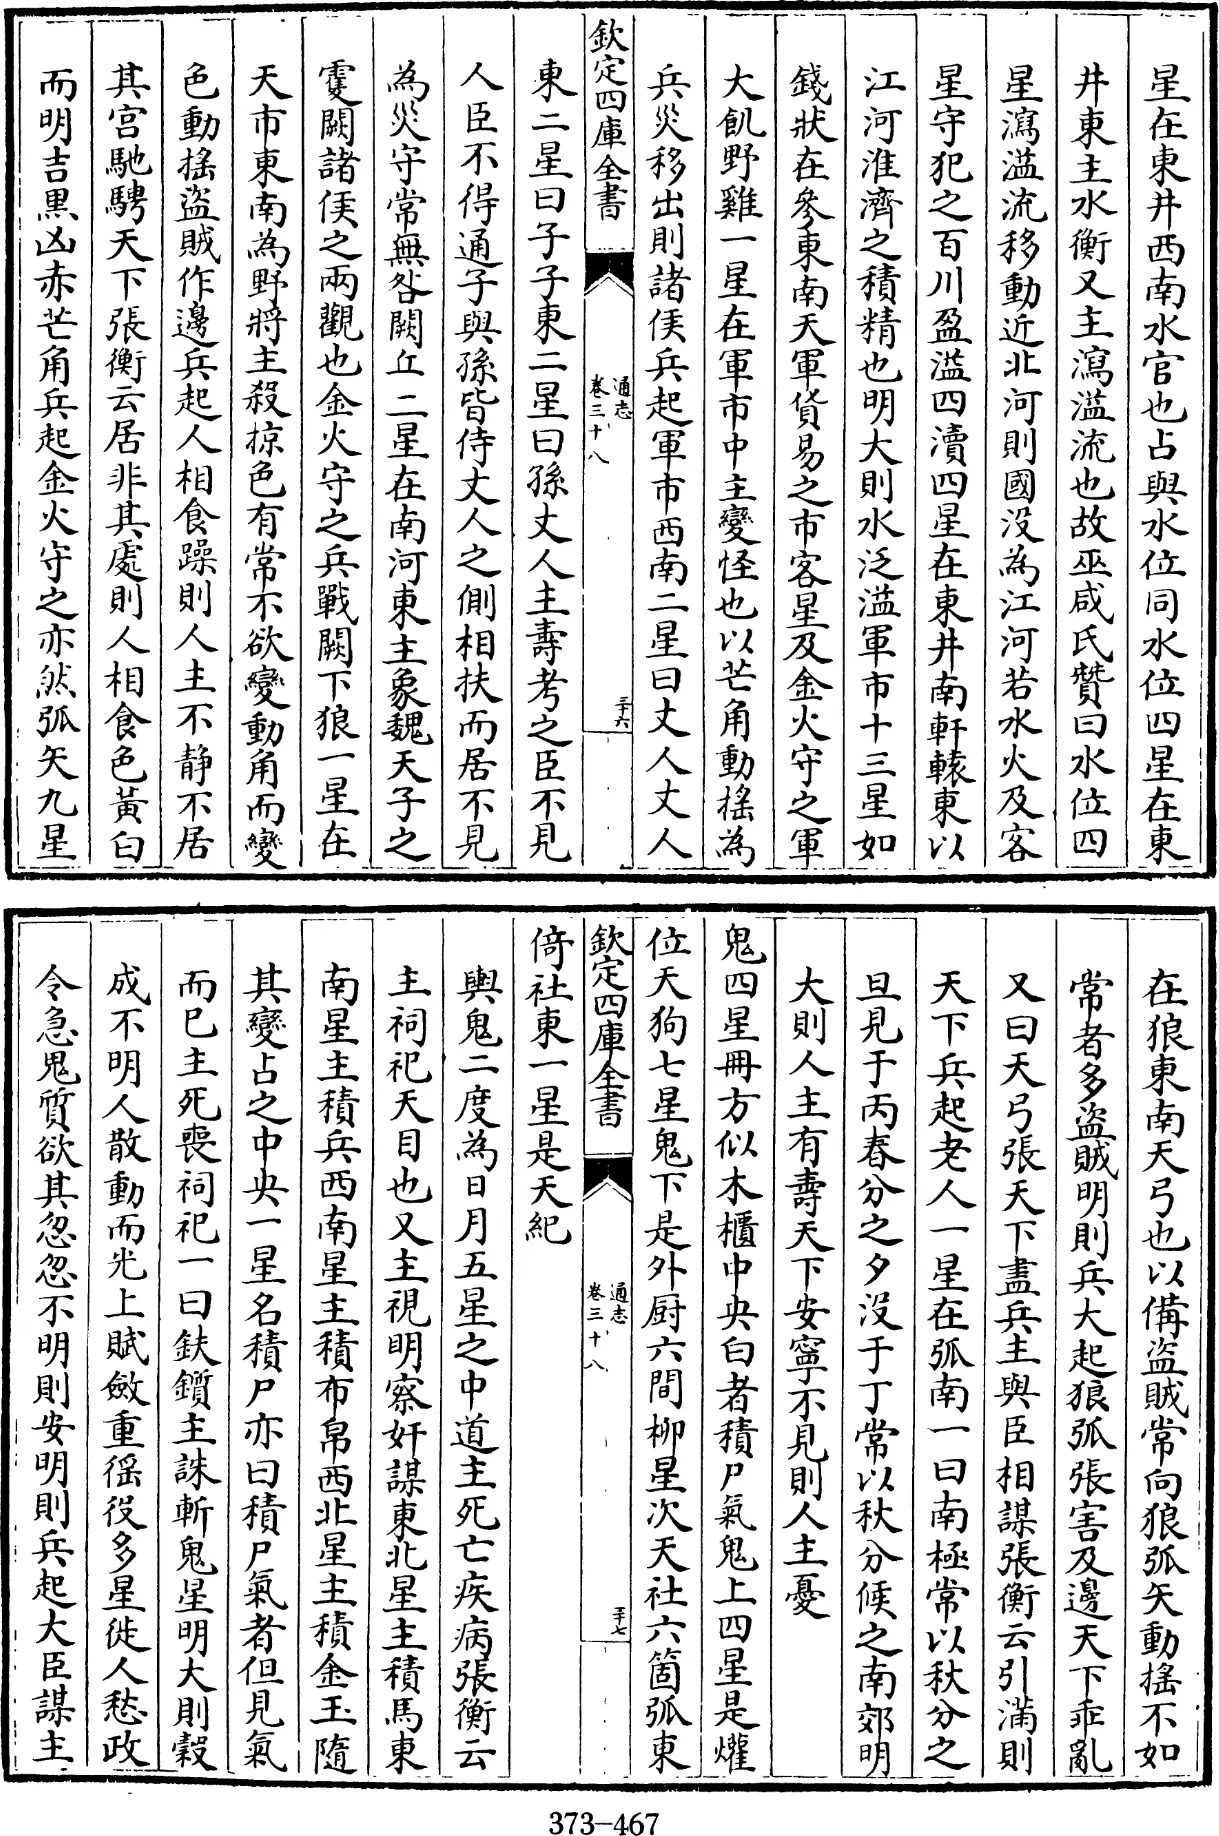 星在東井西南水官也占與水位同水位四星在東
井東主水衡又主瀉溢流也故巫咸氏贊曰水位四
星瀉溢流移動近北河則國没為江河若水火及客
星守犯之百川盈溢四瀆四星在東井南軒轅東以
江河淮濟之積精也明大則水泛溢軍市十三星如
錢狀在參東南天軍貨易之市客星及金火守之軍
大飢野雞一星在軍市中主變怪也以芒角動摇為
兵災移出則諸侯兵起軍市西南二星曰丈人丈人
欽定四庫全書
通志
卷三十八
三十六
東二星曰子子東二星曰孫丈人主壽考之臣不見
人臣不得通子與孫皆侍丈人之側相扶而居不見
為災守常無咎闕丘二星在南河東主象魏天子之
雙闕諸侯之兩觀也金火守之兵戰闕下狼一星在
天市東南為野將主殺掠色有常不欲變動角而變
色動摇盜賊作邊兵起人相食躁則人主不静不居
其宫馳騁天下張衡云居非其處則人相食色黃白
而明吉黒凶赤芒角兵起金火守之亦然弧矢九星
在狼東南天弓也以備盜賊常向狼弧矢動摇不如
常者多盜賊明則兵大起狼弧張害及邊天下乖亂
又曰天弓張天下盡兵主與臣相謀張衡云引滿則
天下兵起老人一星在弧南一曰南極常以秋分之
旦見于丙春分之夕没于丁常以秋分候之南郊明
大則人主有壽天下安寧不見則人主憂
鬼四星冊方似木櫃中央白者積尸氣鬼上四星是爟
位天狗七星鬼下是外厨六間柳星次天社六箇弧東
欽定四庫全書
通志
卷三十八
三十七
倚社東一星是天紀
輿鬼二度為日月五星之中道主死亡疾病張衡云
主祠祀天目也又主視明察奸謀東北星主積馬東
南星主積兵西南星主積布帛西北星主積金玉隨
其變占之中央一星名積尸亦曰積尸氣者但見氣
而已主死喪祠祀一曰鈇鑕主誅斬鬼星明大則穀
成不明人散動而光上賦斂重徭役多星徙人愁政
令急鬼質欲其忽忽不明則安明則兵起大臣謀主
373-467